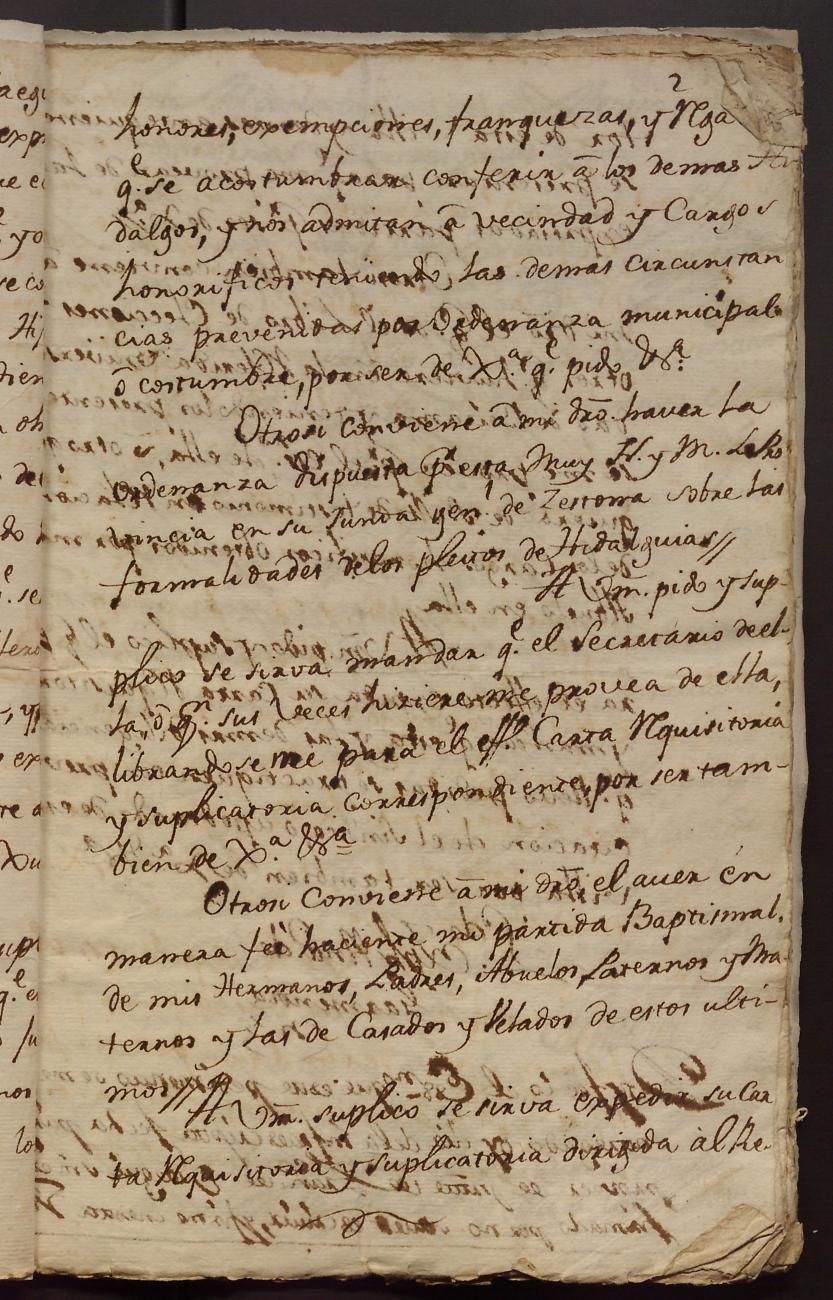 2
honores, exempciones, franquezas, y Rega
q.e se acostumbran conferir â los demas Hi
dalgos, y nos admitan â vecindad y Cargos
honorificos teniendo, las demas circunstan
cias prevenidas por Ordenanza municipal
ô costumbre, por ser de X.a q.e pido, &.a
Otrosi conviene â mi dro. haver la
ordenanza dispuesta p.r esta Muy N. y M. L. Pro
vincia en su Junta gen.l de Zestona sobre las
formalidades de los pleitos de Hidalguias//
A Vm. pido y sup-
plico se sirva mandar q.e el Secretario de el-
la, ô q.n sus veces hiziere, me provea de ella,
librandoseme para el eff.to Carta Requisitoria
y suplicatoria correspondiente, por ser tam-
bien de X.a &.a
Otrosi Conviene â mi dro, el aver en
manera feé haciente mi partida Baptismal,
de mis Hermanos, Padres, Abuelos Paternos y Ma-
ternos y las de Casados y Velados de estos ulti-
mos//
A Vm. suplico se sirva expedir su Car
ta Requisitoria y suplicatoria dirigida al Re-